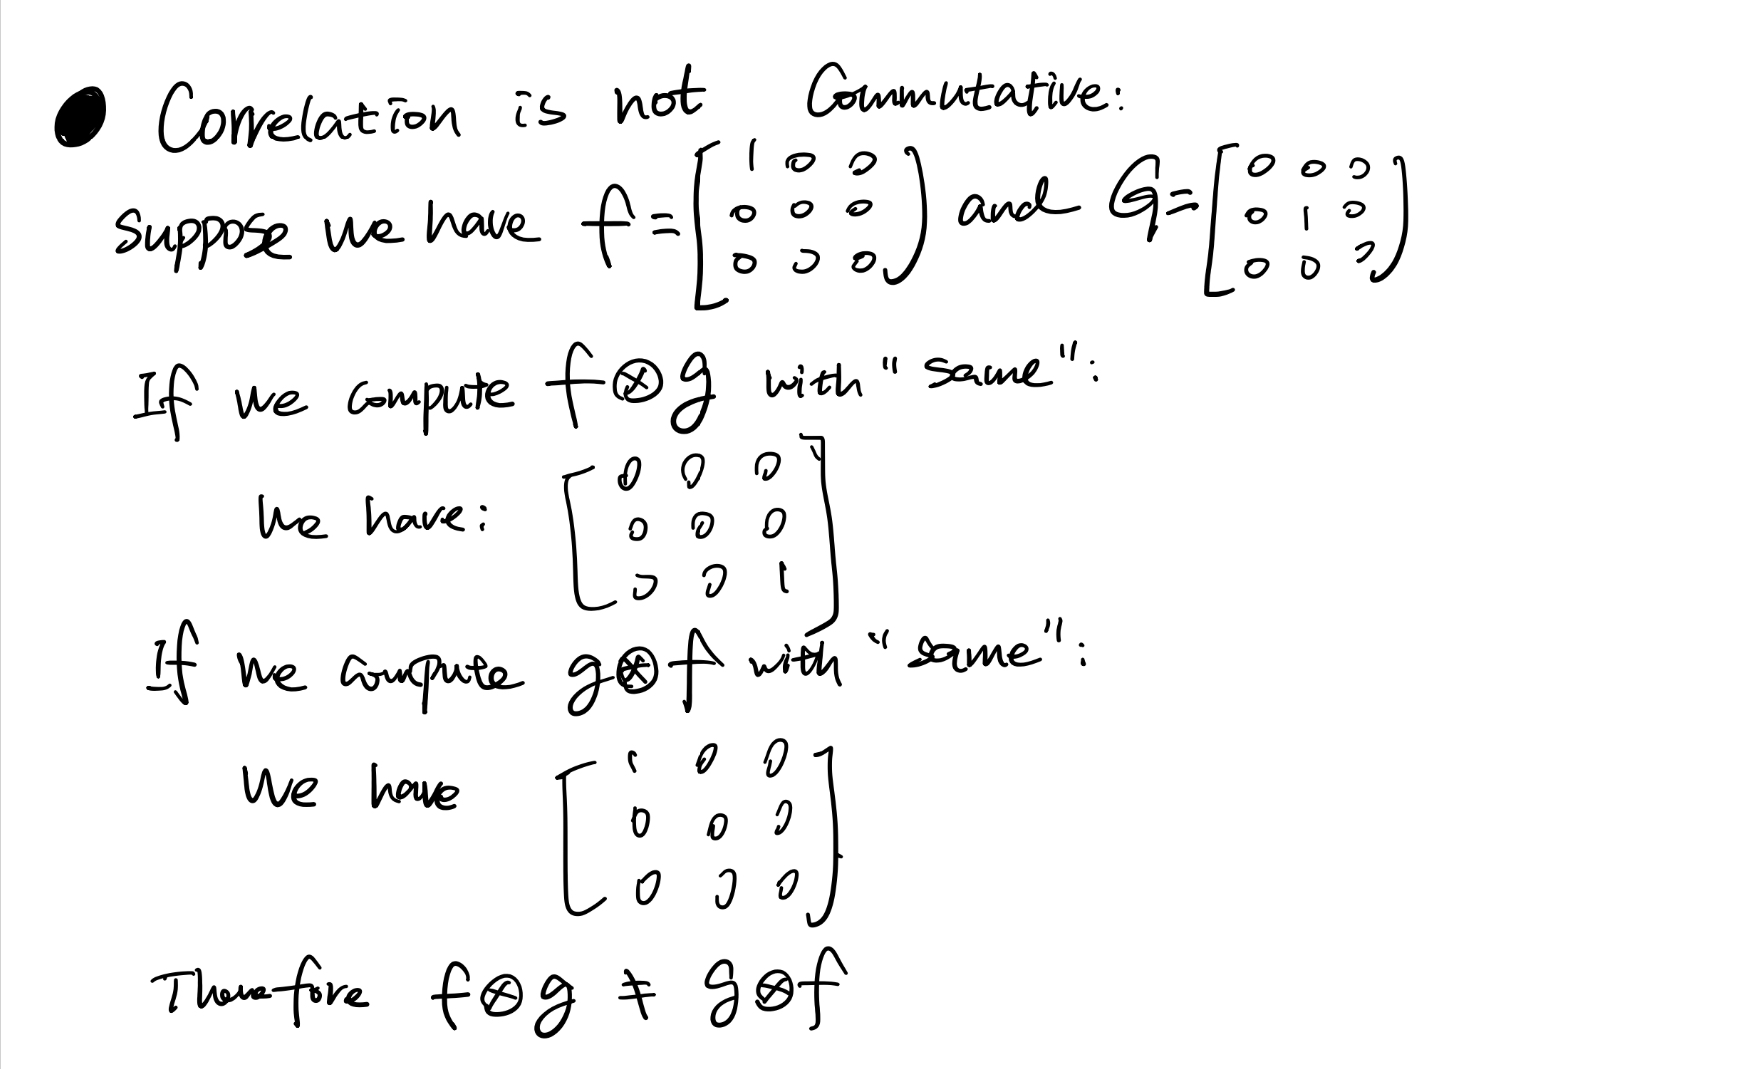 ● Correlation is not Commutative:
Suppose we have f = [1 0 0; 0 0 0; 0 0 0] and G = [0 0 0; 0 1 0; 0 0 0]
If we compute f ⊗ g with "same":
We have: [0 0 0; 0 0 0; 0 0 1]
If we compute g ⊗ f with "same":
We have [1 0 0; 0 0 0; 0 0 0]
Therefore f ⊗ g ≠ g ⊗ f